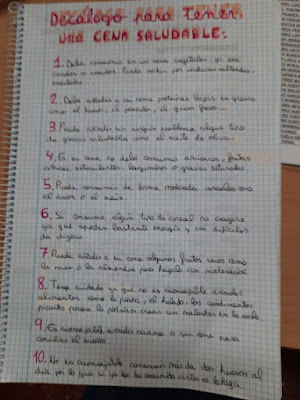 Decálogo para tener
UNA CENA SALUDABLE:
1. Debe consumir en su cena vegetales, ya sea
crudos o cocidos. Puede optar por verduras salteadas,
ensaladas...
2. Debe añadir a su cena proteínas bajas en grasas
como el huevo, el pescado, el queso fresco...
3. Puede añadir sin ningún problema algún tipo
de grasas saludables como el aceite de oliva.
4. En su cena no debe consumir azúcares, frutas
, estimulantes, legumbres o grasas saturadas
5. Puede consumir de forma moderada cereales como
el arroz o el maíz
6. Si consume algún tipo de cereal no exagere
ya que aportan bastante energía y son difíciles
de digerir
7. Puede añadir a su cena algunos frutos secos como
la nuez o la almendra pero hágalo con moderación
8. Tenga cuidado ya que no es aconsejable añadir
alimentos como la pasta, el helado, los condimentos
picantes porque le podrían crear un malestar en la noche
9. Es aconsejable añadir avena a su cena para
conciliar el sueño
10. No es aconsejable consumir más de dos huevos al
día por lo que si ya los ha consumido antes no lo haga